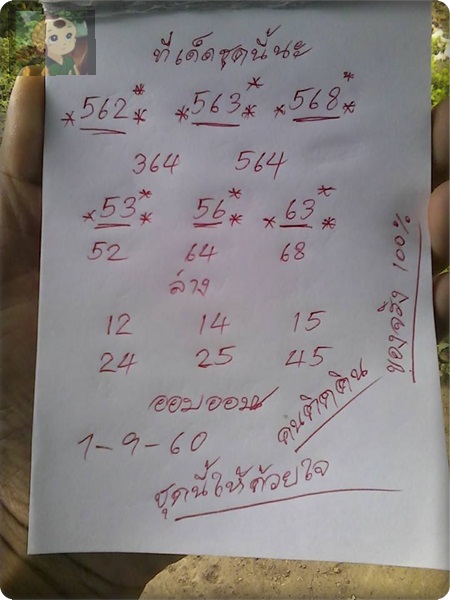 ทีเด็ดชุดนี้นะ
*562** *563** *568**
364 564
*53** 56** *63**
52 64 68
ล่าง
12 14 15
24 25 45
ออมออม
1-9-60
คนติดดิน
ของจริง 100%
ชุดนี้ให้ด้วยใจ